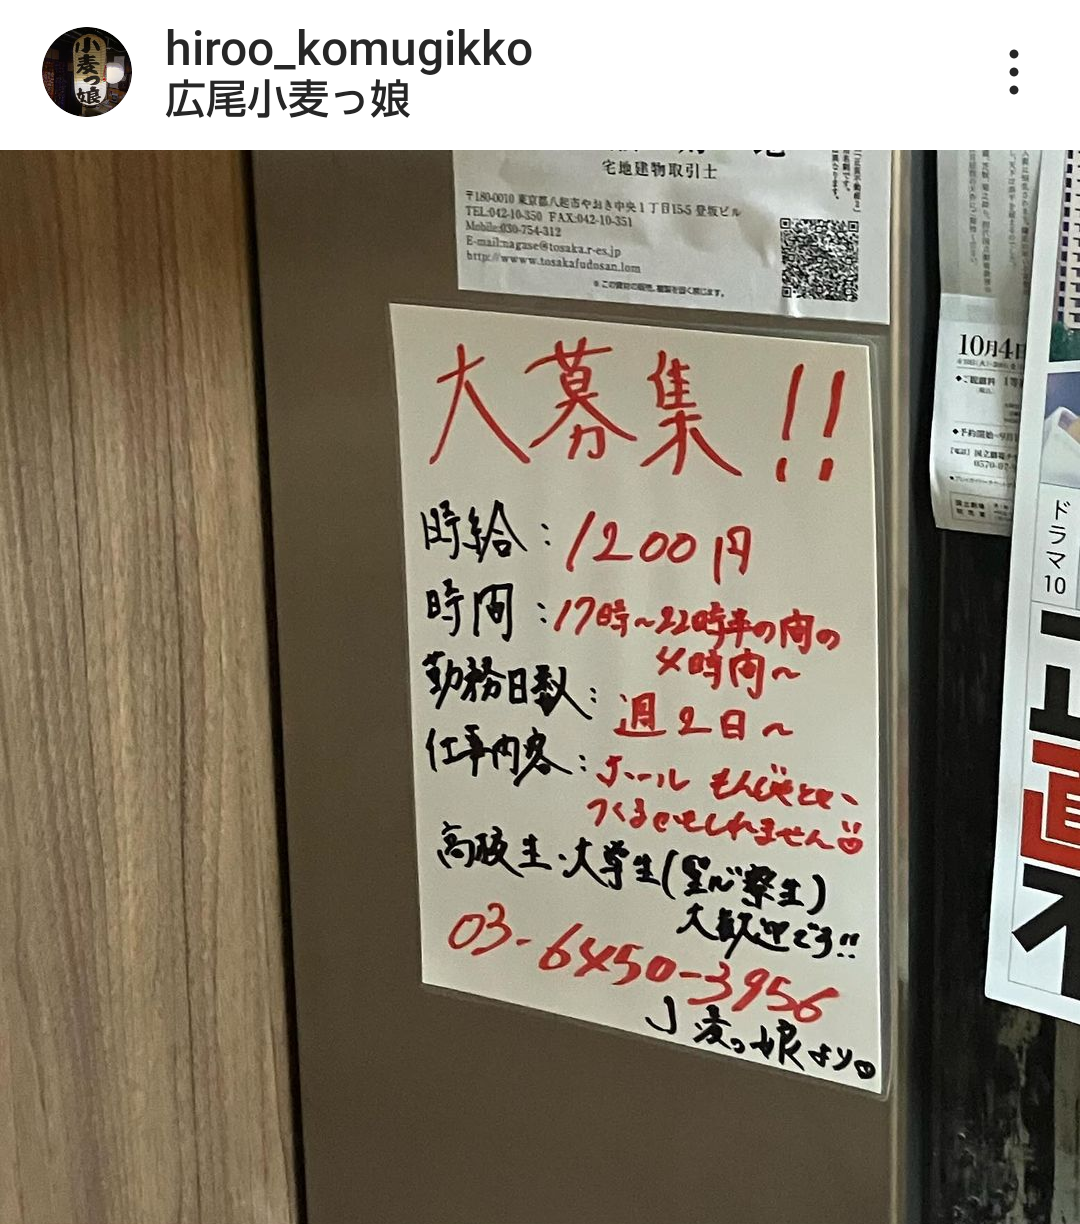 hiroo_komugikko
広尾小麦っ娘
小麦っ娘
宅地建物取引士
〒180-0010 東京都八起市やおき中央1丁目15-5 登坂ビル
TEL:042-10-350 FAX:042-10-351
Mobile:030-754-312
E-mail:nagase@tosaka.r-es.jp
http://wwww.tosakafudosan.lom
大募集!!
時給:1200円
時間:17時~22時半の間の
4時間~
勤務日数:週2日~
仕事内容:ホール もんじゃとか、
つくるかもしれません
高校生・大学生(聖心寮生)
大歓迎です!!
03-6450-3956
小麦っ娘より
10月4日
◆ご観劇料 1等
◆予約開始=9月
ドラマ10
正直不